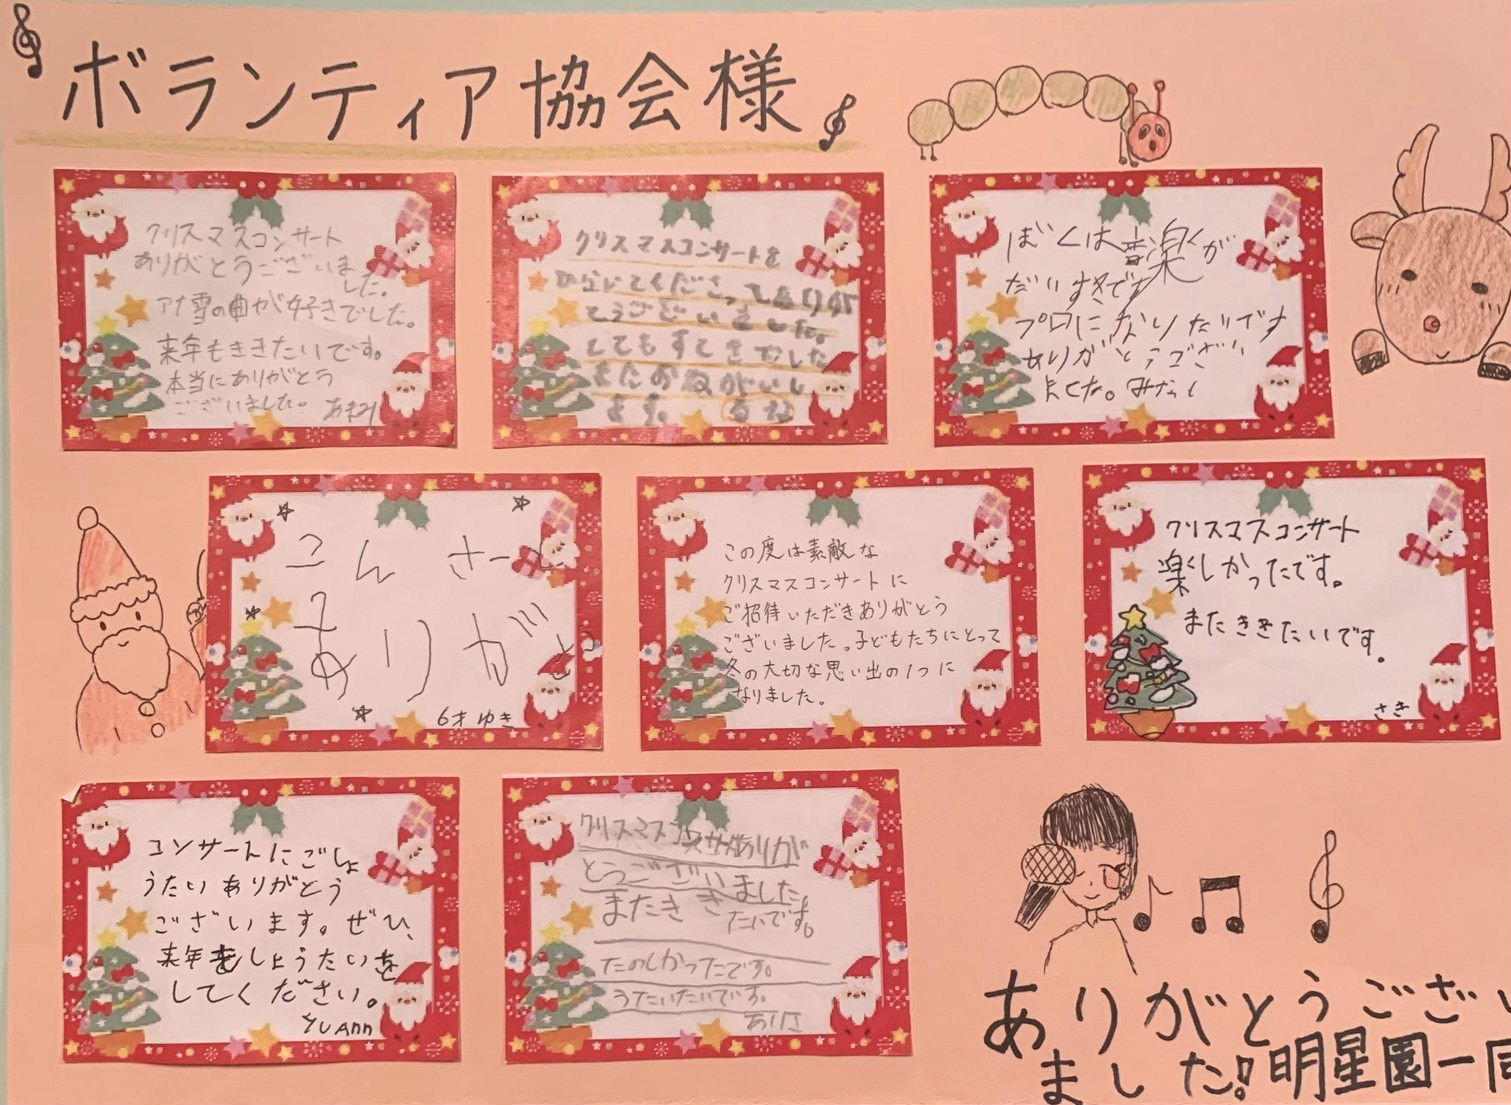 ボランティア協会様
クリスマスコンサート
ありがとうございました。
アナ雪の曲が好きでした。
来年もききたいです。
本当にありがとう
ございました。 あまね
クリスマスコンサートを
ひらいてくださってありが
とうございました。
とてもすてきでした
またおねがいし
ます。 るな
ぼくは音楽が
だいすきです
プロになりたいです
ありがとうござい
ました。
こんさーと
ありがと
6才 ゆき
この度は素敵な
クリスマスコンサートに
ご招待いただきありがとう
ございました。子どもたちにとって
冬の大切な思い出の1つに
なりました。
クリスマスコンサート
楽しかったです。
またききたいです。
さき
コンサートにごしょ
うたいありがとう
ございます。ぜひ、
来年もしょうたいを
してください。
YUAnn
クリスマスコンサートありが
とうございました。
またきき
たいです。
たのしかったです。
うたいたいです。
ありさ
ありがとうござい
ました!明星園一同